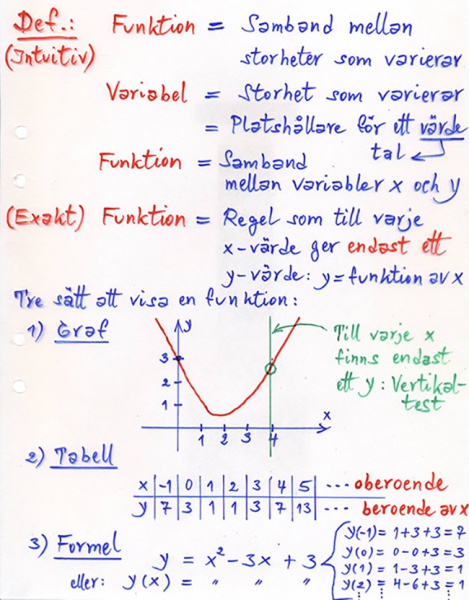 Def.: Funktion = Samband mellan
(Intuitiv) storheter som varierar
Variabel = Storhet som varierar
= Platshållare för ett värde
tal
Funktion = Samband
mellan variabler x och y
(Exakt) Funktion = Regel som till varje
x-värde ger endast ett
y-värde: y = funktion av x
Tre sätt att visa en funktion:
1) Graf
y
3
2
1
1 2 3 4
x
Till varje x
finns endast
ett y: Vertikal-
test
2) Tabell
x | -1 | 0 | 1 | 2 | 3 | 4 | 5 | ... oberoende
y | 7 | 3 | 1 | 1 | 3 | 7 | 13 | ... beroende av x
3) Formel
y = x² - 3x + 3
eller: y(x) = " " "
y(-1) = 1+3+3 = 7
y(0) = 0-0+3 = 3
y(1) = 1-3+3 = 1
y(2) = 4-6+3 = 1